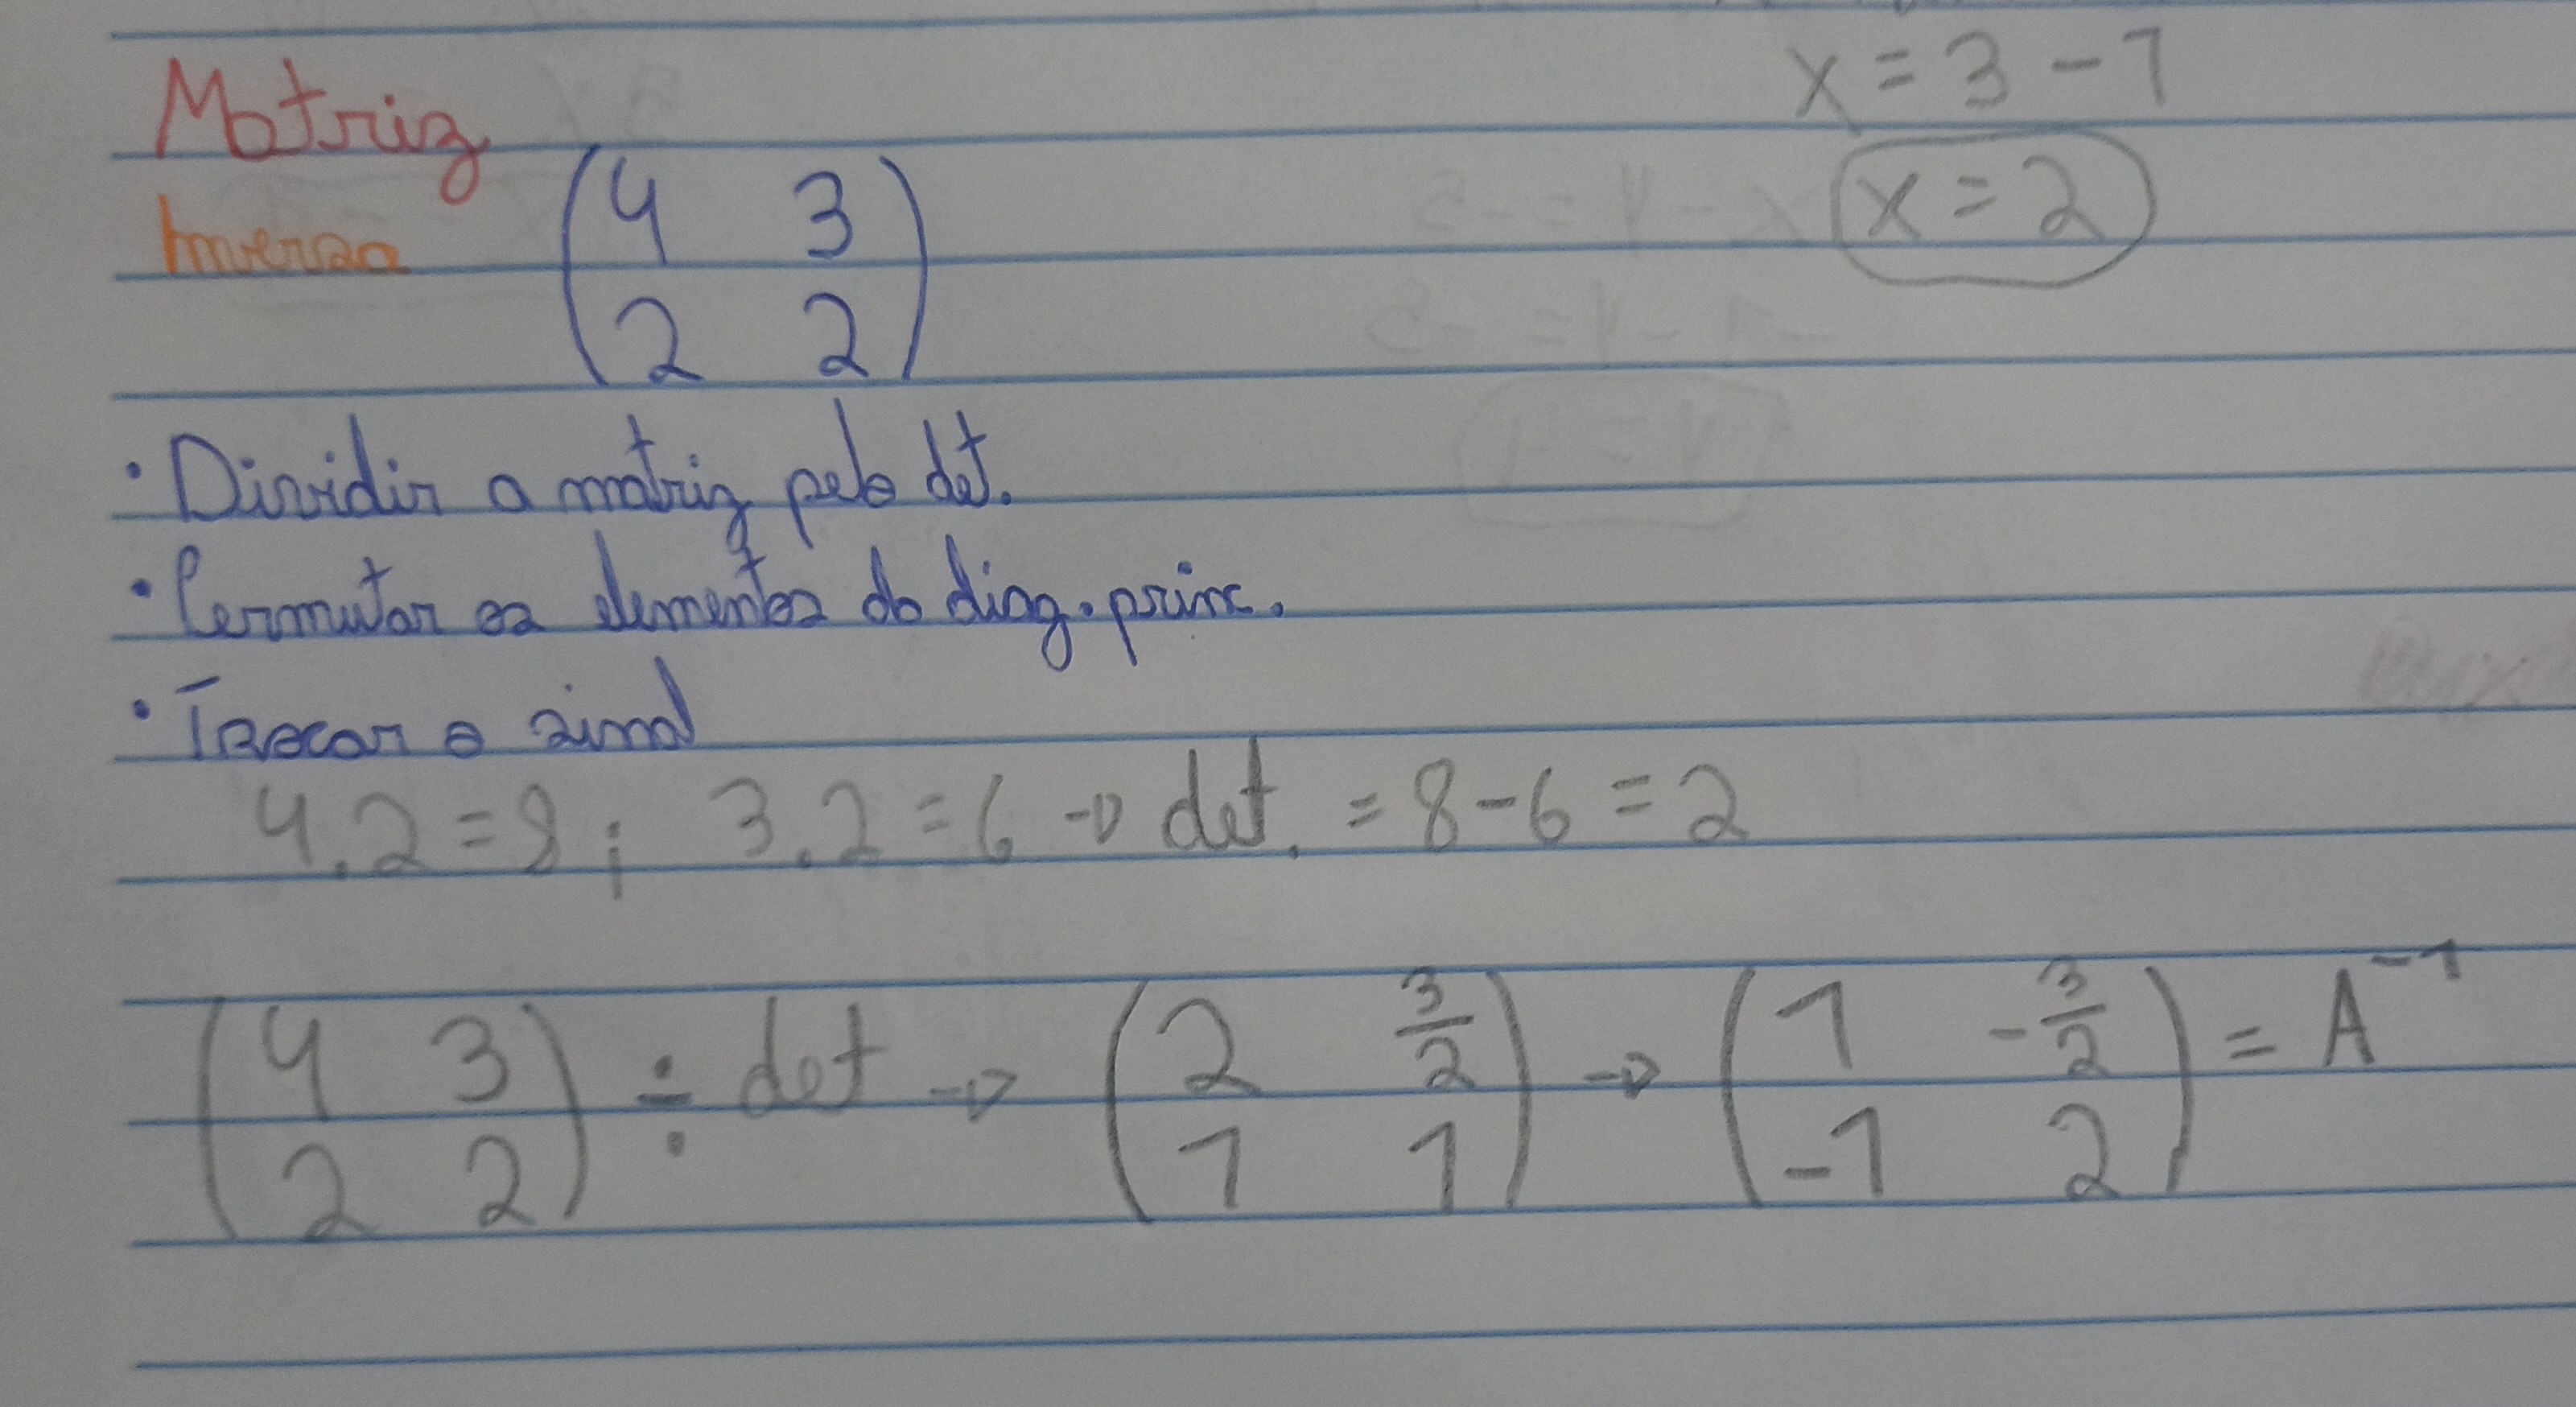 x = 3 - 1
Matriz
x = 2
Inversa
( 4 3
2 2 )
· Dividir a matriz pelo det.
· Permutar os elementos da diag. princ.
· Trocar o sinal
4.2 = 8 ; 3.2 = 6 → det. = 8 - 6 = 2
( 4 3 ÷ det → ( 2 3/2 → ( 1 -3/2 = A⁻¹
2 2 ) 1 1 ) -1 2 )